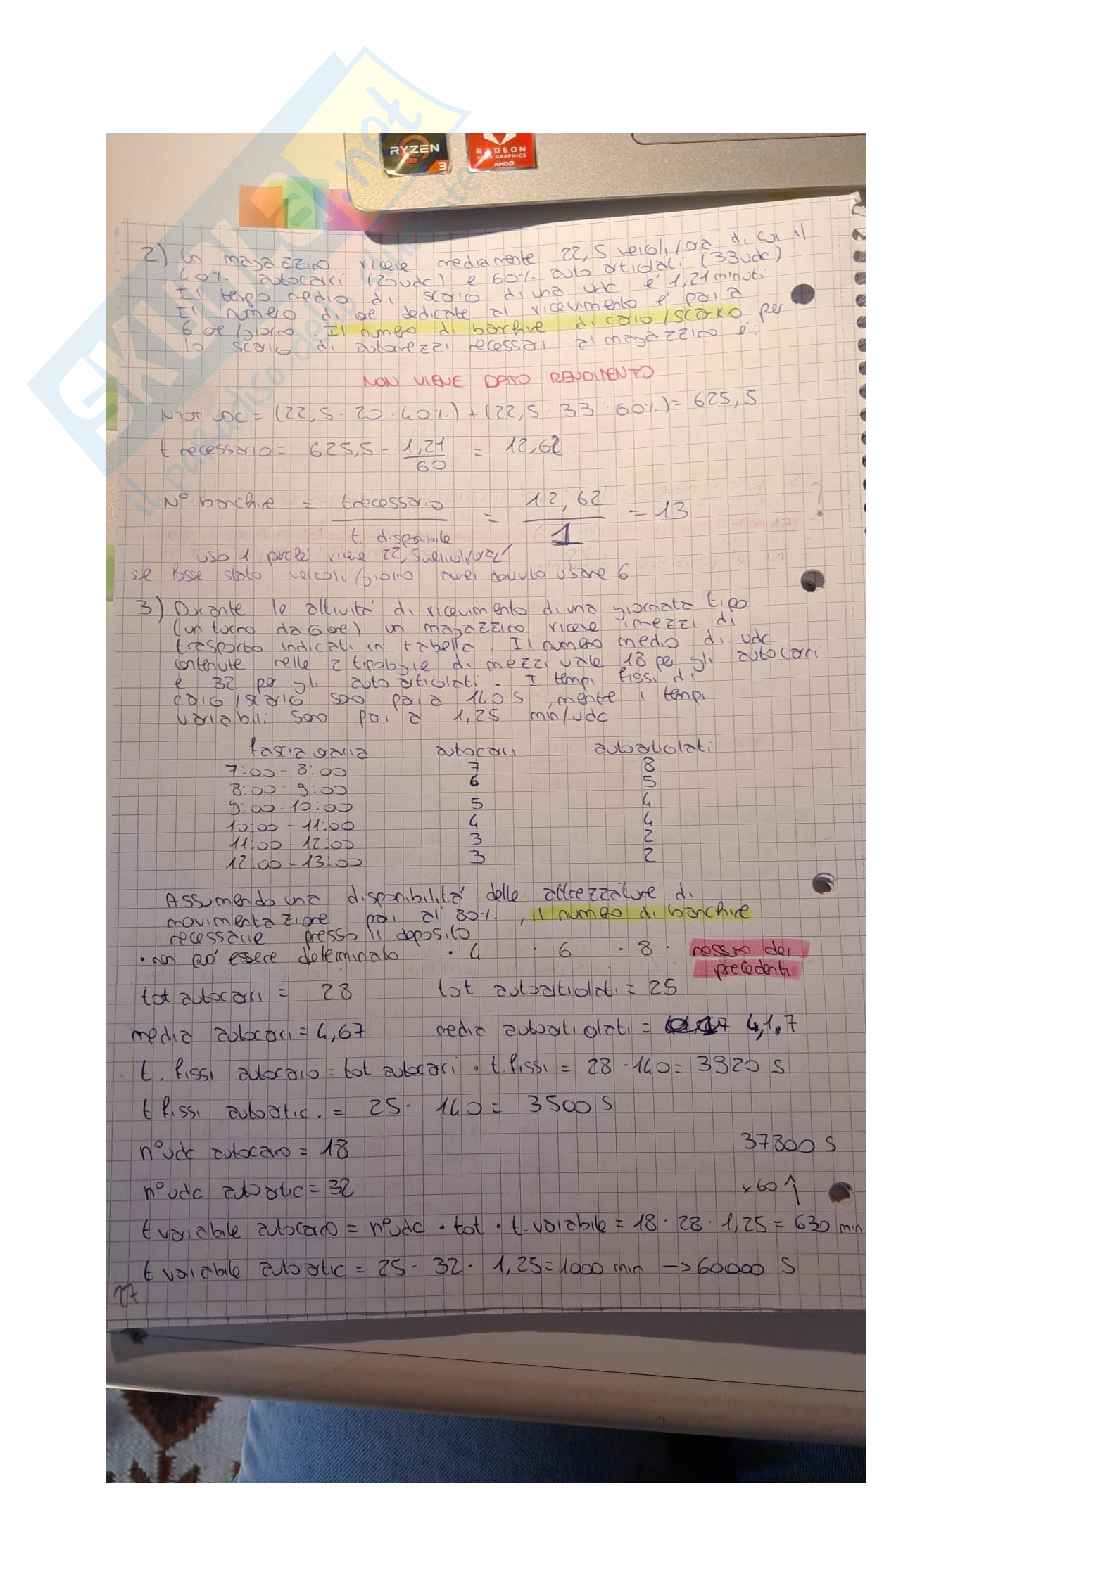 RYZEN
3
RADEON
GRAPHICS
AMD
SKUOLA.net
2) Un magazzino riceve mediamente 22,5 veicoli/ora di cui il
40% autocarri (20udc) e 60% auto articolati (33udc)
Il tempo medio di scarico di una udc e' 1,21 minuti
Il numero di ore dedicate al ricevimento e' pari a
6 ore/giorno. Il numero di banchine di carico/scarico per
lo scarico di automezzi necessari al magazzino e':
NON VIENE DATO RENDIMENTO
N tot UDC = (22,5 · 20 · 40%) + (22,5 · 33 · 60%) = 625,5
t necessario = 625,5 - 1,21/60 = 12,62
N° banchine = t necessario / t disponibile = 12,62 / 1 = 13
uso 1 perché riceve 22,5 veicoli/ora!
se fosse stato veicoli/giorno avrei dovuto usare 6
3) Durante le attività di ricevimento di una giornata tipo
(un turno da 6 ore) un magazzino riceve i mezzi di
trasporto indicati in tabella. Il numero medio di udc
contenute nelle 2 tipologie di mezzi vale 18 per gli autocarri
e 32 per gli auto articolati. I tempi fissi di
carico/scarico sono pari a 140 s, mentre i tempi
variabili sono pari a 1,25 min/udc
fascia oraria autocarri autoarticolati
7:00 - 8:00 7 8
8:00 - 9:00 6 5
9:00 - 10:00 5 4
10:00 - 11:00 4 4
11:00 - 12:00 3 2
12:00 - 13:00 3 2
Assumendo una disponibilità delle attrezzature di
movimentazione pari al 80%, il numero di banchine
necessarie presso il deposito
· non può essere determinato · 4 · 6 · 8 · nessuno dei
precedenti
tot autocarri = 28 tot autoarticolati = 25
media autocarri = 4,67 media autoarticolati = 4,1.7
t. fissi autocarro = tot autocarri · t. fissi = 28 · 140 = 3920 s
t fissi autoartic. = 25 · 140 = 3500 s
n° udc autocarro = 18 37800 s
n° udc autoartic = 32 x60 ↑
t variabile autocarro = n° udc · tot · t. variabile = 18 · 28 · 1,25 = 630 min
t variabile autoartic = 25 · 32 · 1,25 = 1000 min -> 60000 s